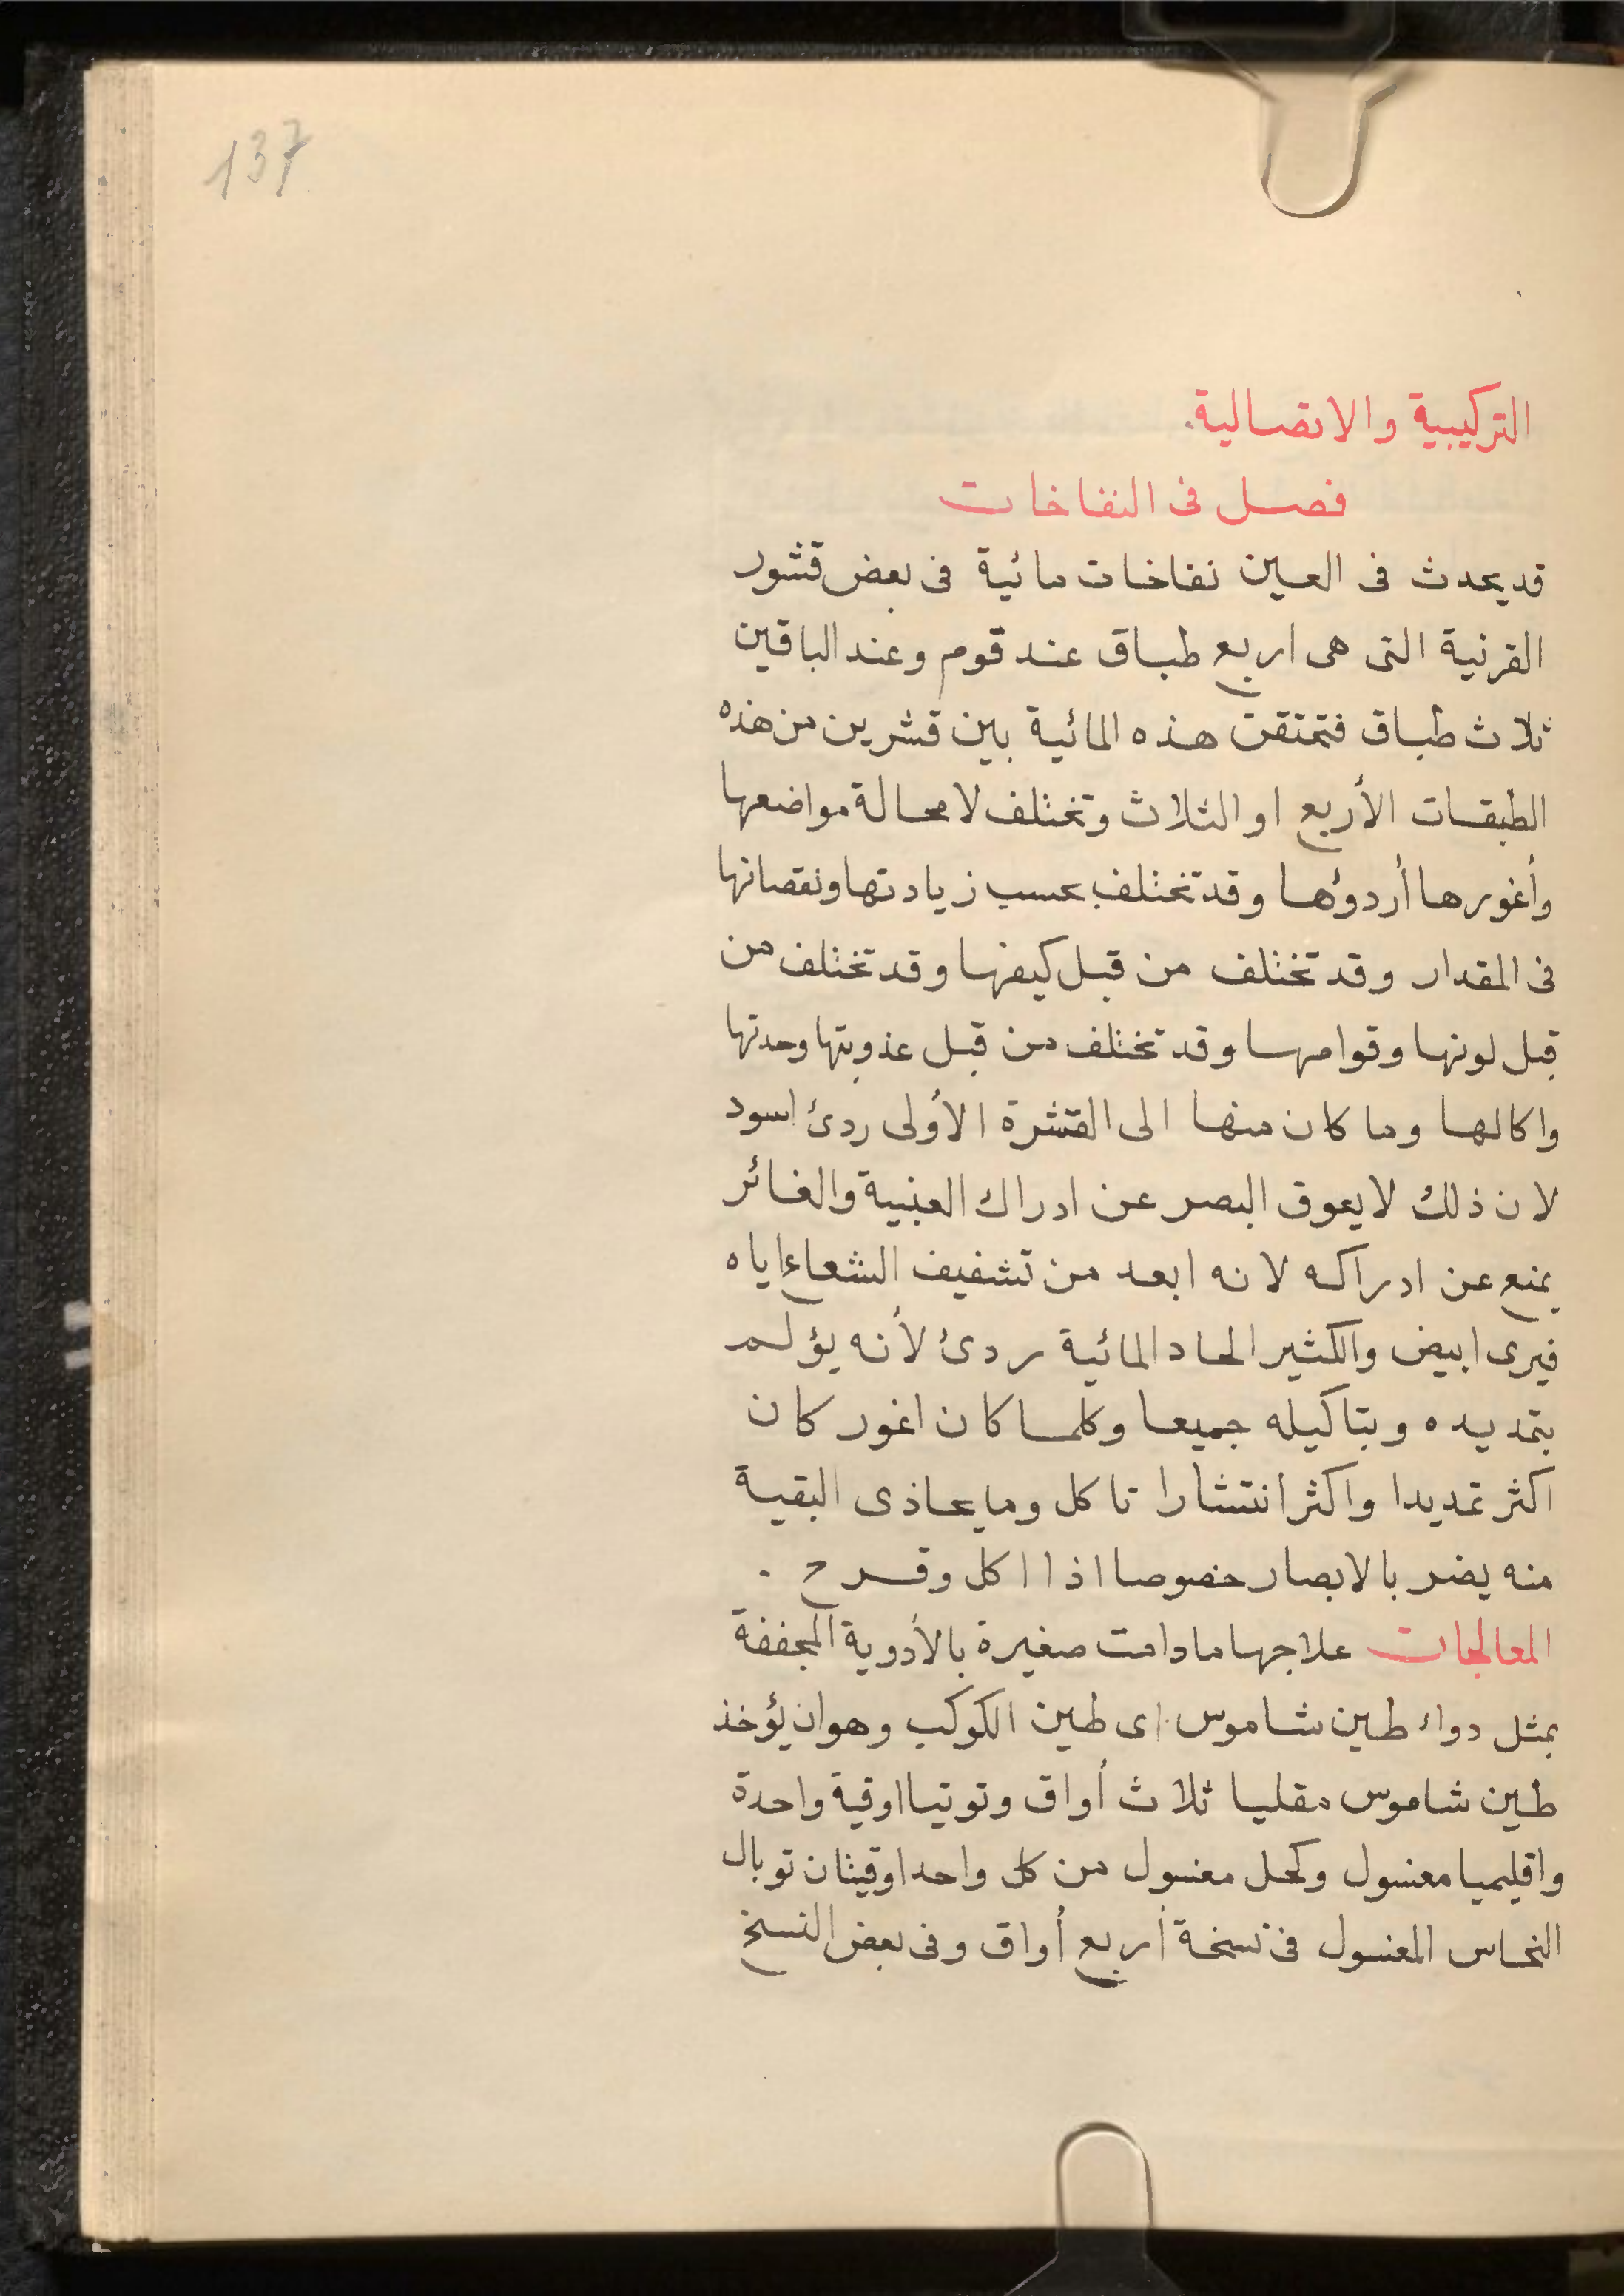 137
التركيبية والاتصالية.
فصل فى النفاخات
قد يحدث فى العين نفاخات مائية فى بعض قشور
القرنية التى هى اربع طباق عند قوم وعند الباقين
ثلاث طباق فتحتقن هذه المائية بين قشرين من هذه
الطبقات الأربع او الثلاث وتختلف لا محالة مواضعها
وأغورها أردؤها وقد تختلف بحسب زيادتها ونقصانها
فى المقدار وقد تختلف من قبل كيفها وقد تختلف من
قبل لونها وقوامها وقد تختلف من قبل عذوبتها وحدتها
واكالها وما كان منها الى القشرة الأولى ردئ اسود
لان ذلك لا يعوق البصر عن ادراك العنبية والغائر
يمنع عن ادراكه لانه ابعد من تشفيف الشعاع اياه
فيرى ابيض والكثير الحاد المائية ردئ لأنه يؤلم
بتمديده وبتاكيله جميعا وكلما كان اغور كان
اكثر تمديدا واكثر انتشارا تاكل وما يحاذى البقية
منه يضر بالابصار خصوصا اذا اكل وقرح .
المعالجات علاجها ما دامت صغيرة بالأدوية المجففة
بمثل دواء طين شاموس اى طين الكوكب وهو ان يؤخذ
طين شاموس مقليا ثلاث أواق وتوتيا اوقية واحدة
واقليميا مغسول وكحل مغسول من كل واحد اوقيتان توبال
النحاس المغسول فى نسخة أربع أواق وفى بعض النسخ